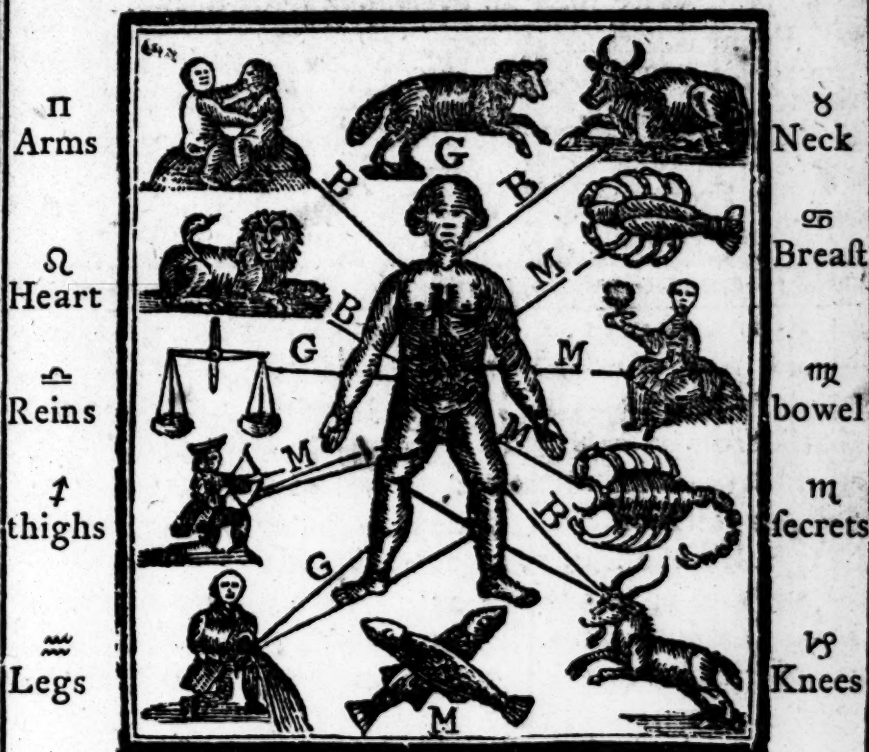 ♊
Arms
♌
Heart
♎
Reins
♐
thighs
♒
Legs
G
B
B
M
B
G
M
M
M
B
G
M
♉
Neck
♋
Breaſt
♍
bowel
♏
ſecrets
♑
Knees